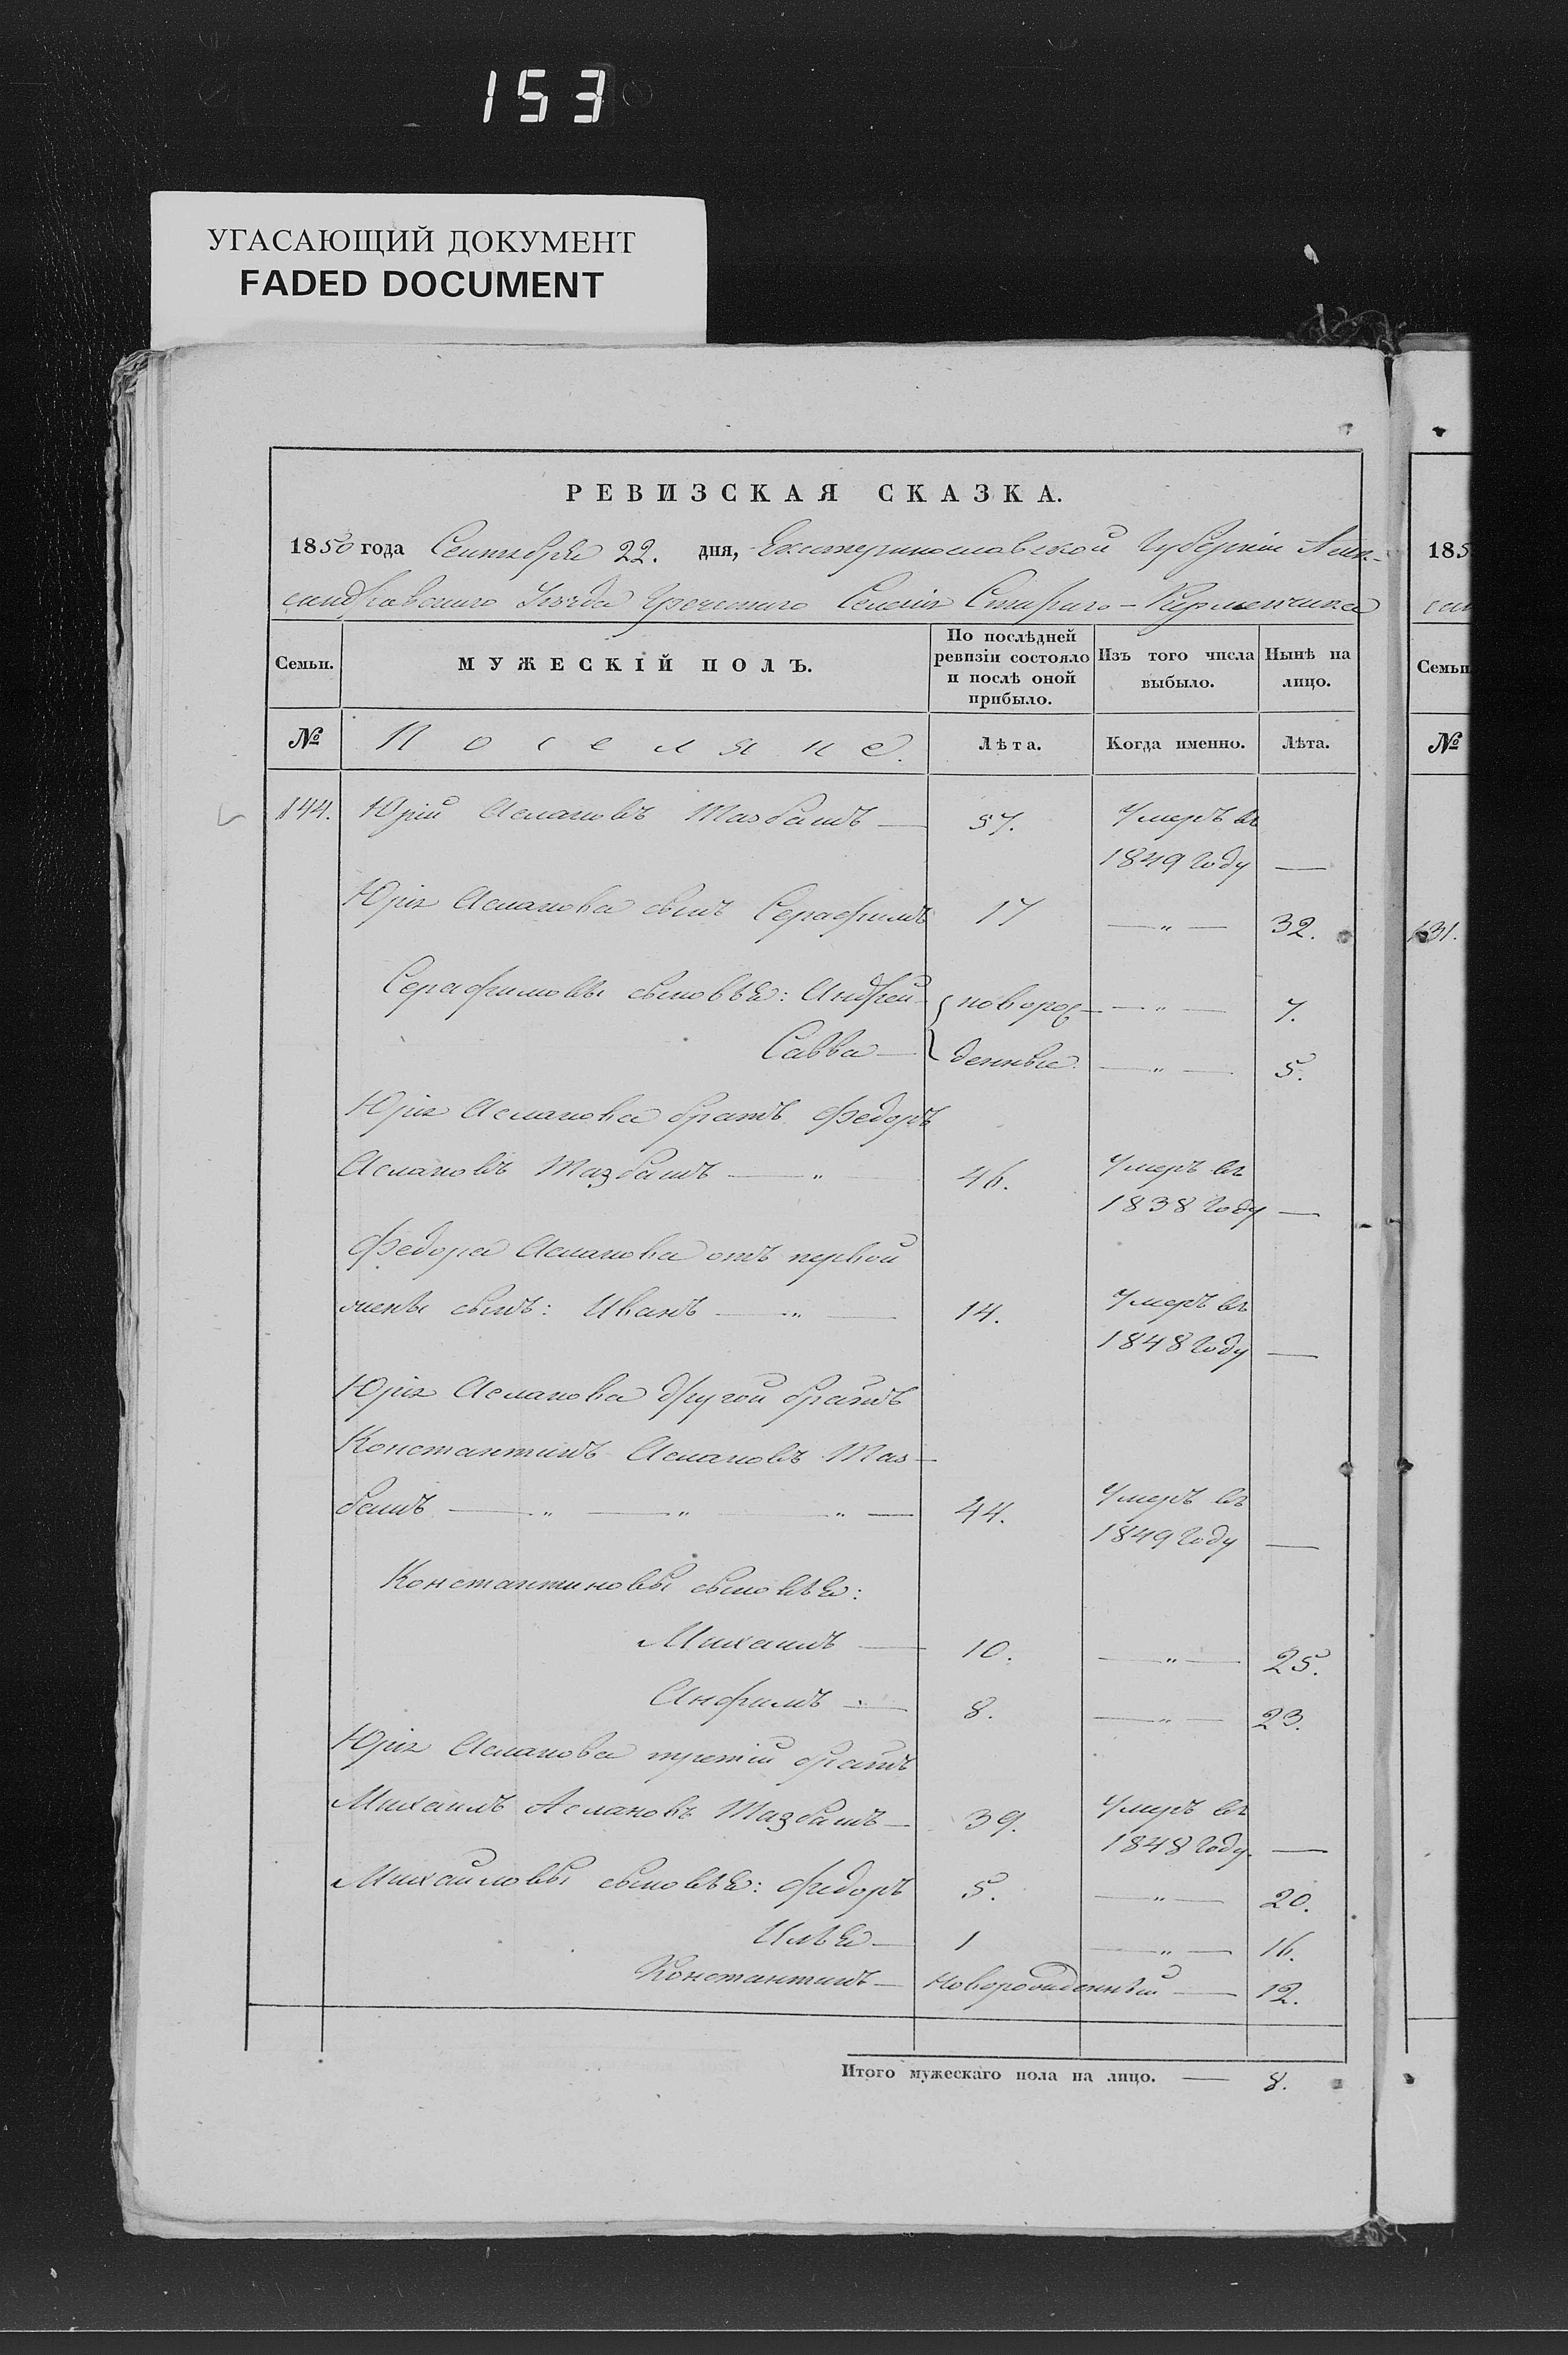 153
УГАСАЮЩИЙ ДОКУМЕНТ
FADED DOCUMENT
РЕВИЗСКАЯ СКАЗКА.
1850 года Сентября 22. дня, Екатеринославской Губерніи Алек-
сандровскаго Уѣзда Греческаго Селенія Стараго-Керменчика
Семьи. МУЖЕСКІЙ ПОЛЪ. По послѣдней ревизіи состояло и послѣ оной прибыло. Изъ того числа выбыло. Нынѣ на лицо.
№ Поселяне. Лѣта. Когда именно. Лѣта.
144. Юрій Аслановъ Тазбашъ — 57. Умеръ въ
1849 Году —
Юрія Асланова сынъ Серафимъ 17 — „ — 32.
Серафимовы сыновья: Андрей — новорож- — „ — 7.
Савва — денные — „ — 5.
Юрія Асланова братъ Федоръ
Аслановъ Тазбашъ — „ 46. Умеръ въ
1838 Году —
Федора Асланова отъ первой
жены сынъ: Иванъ — „ — 14. Умеръ въ
1848 Году —
Юрія Асланова другой братъ
Константинъ Аслановъ Таз-
башъ — „ — „ — „ — 44. Умеръ въ
1849 Году —
Константиновы сыновья:
Михаилъ — 10. — „ — 25.
Анфимъ — 8. — „ — 23.
Юрія Асланова третій братъ
Михаилъ Аслановъ Тазбашъ — 39. Умеръ въ
1848 Году. —
Михайловы сыновья: Федоръ 5. — „ — 20.
Илья — 1 — „ — 16.
Константинъ — Новорожденный — 12.
Итого мужескаго пола на лицо. — 8.
185
Семьи
№
131.